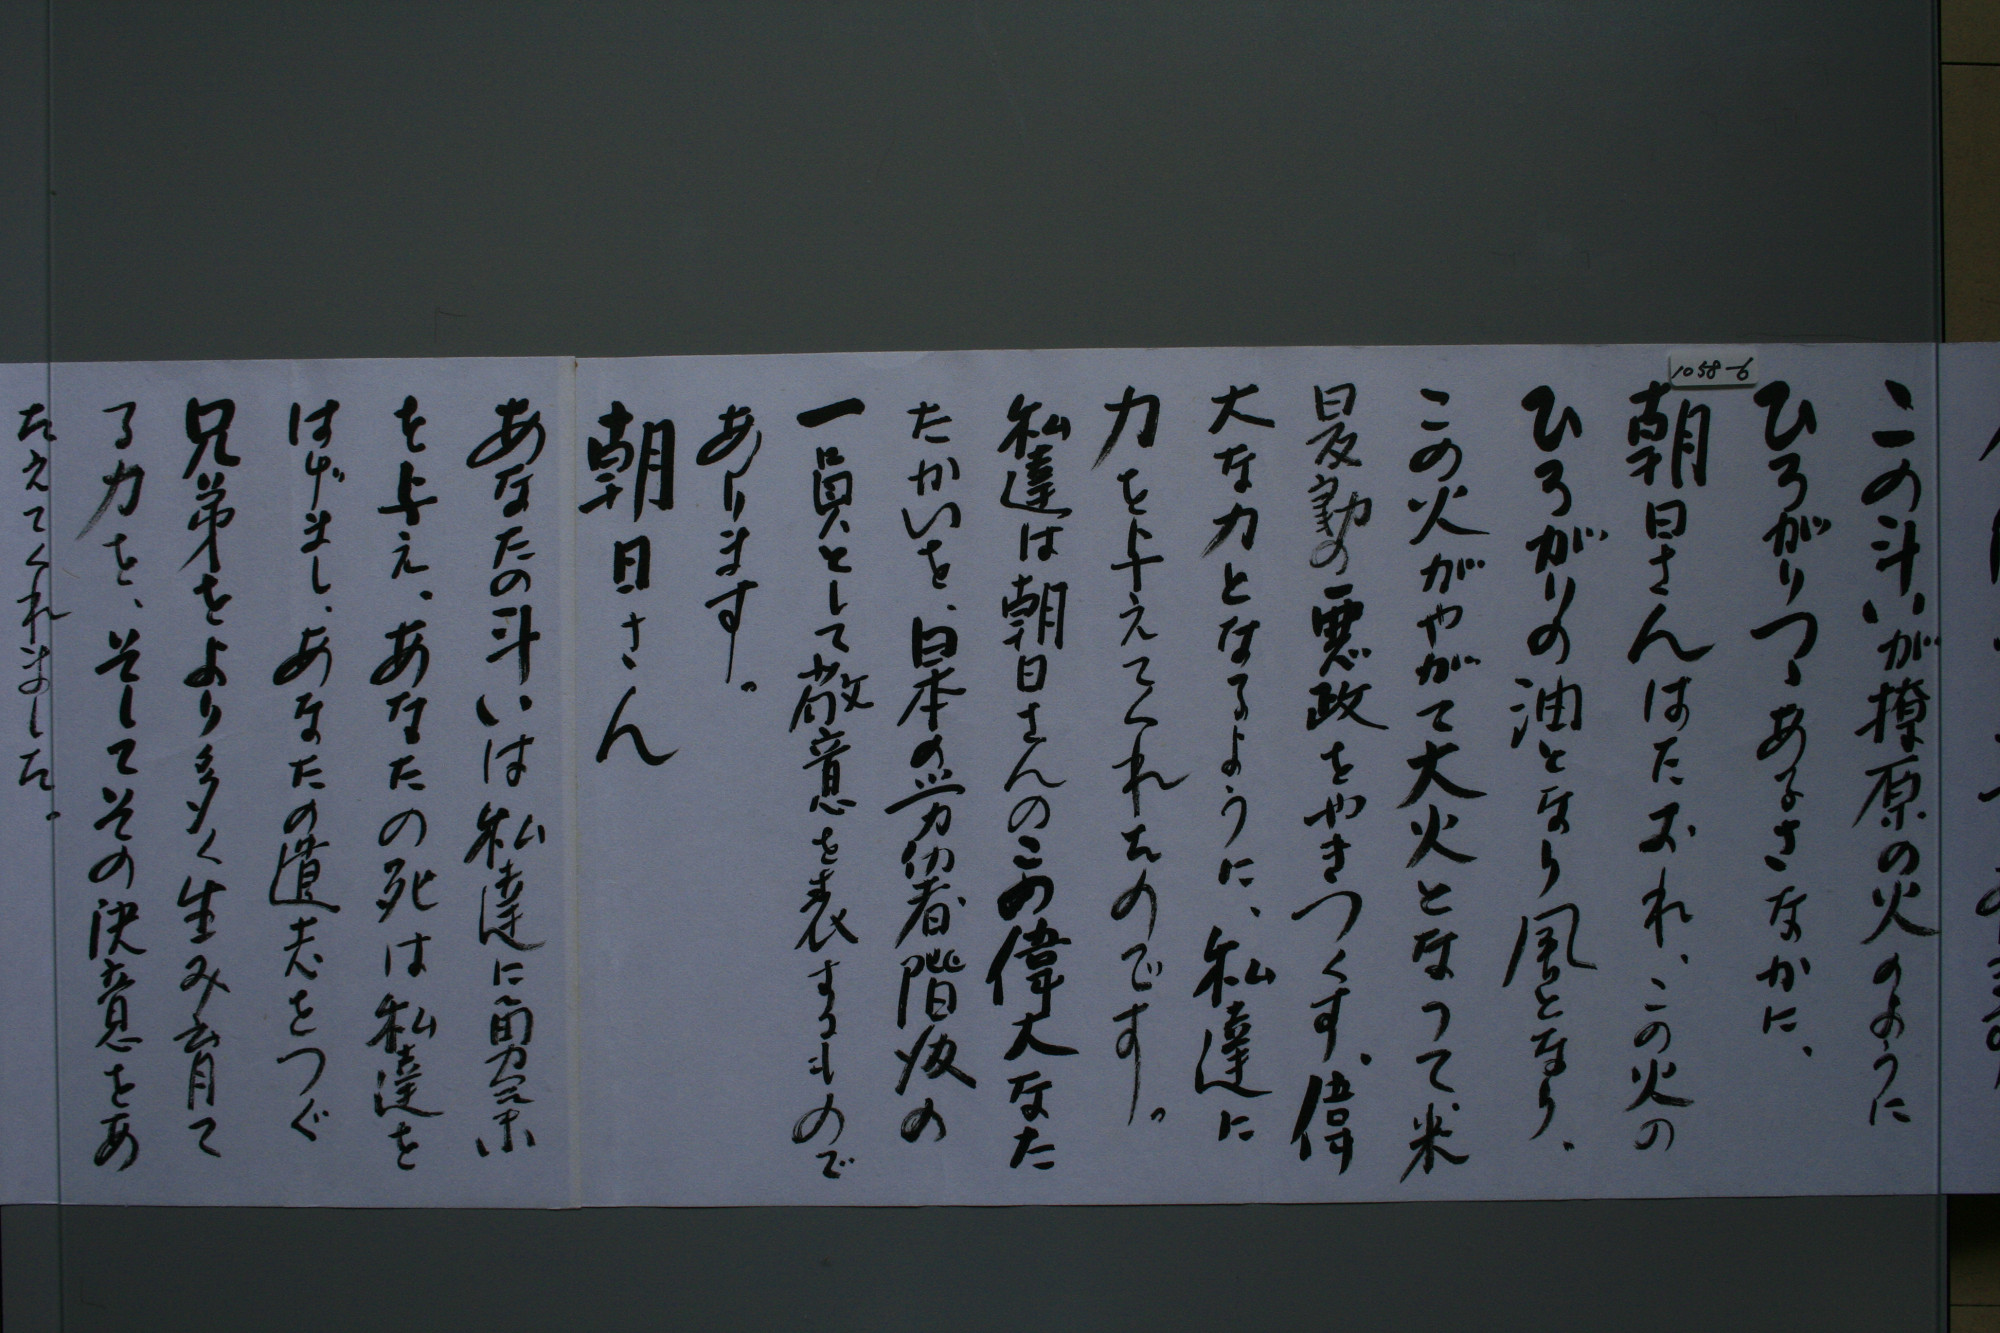 1058-6
この斗いが撩原の火のように
ひろがりつゝあるさなかに、
朝日さんはたおれ、この火の
ひろがりの油となり風となり、
この火がやがて大火となって米
日反動の悪政をやきつくす、偉
大な力となるように、私達に
力を与えてくれたのです。
私達は朝日さんのこの偉大なた
たかいを、日本の労仂者階級の
一員として敬意を表するもので
あります。
朝日さん
あなたの斗いは私達に
を与え、あなたの死は私達を
はげまし、あなたの遺志をつぐ
兄弟をより多く生み育て
る力を、そしてその決意をあ
たえてくれました。